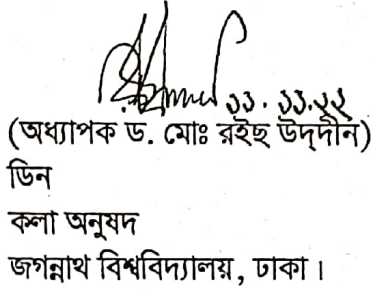 ১১.১১.২২
(অধ্যাপক ড. মোঃ রইছ উদ্‌দীন)
ডিন
কলা অনুষদ
জগন্নাথ বিশ্ববিদ্যালয়, ঢাকা।